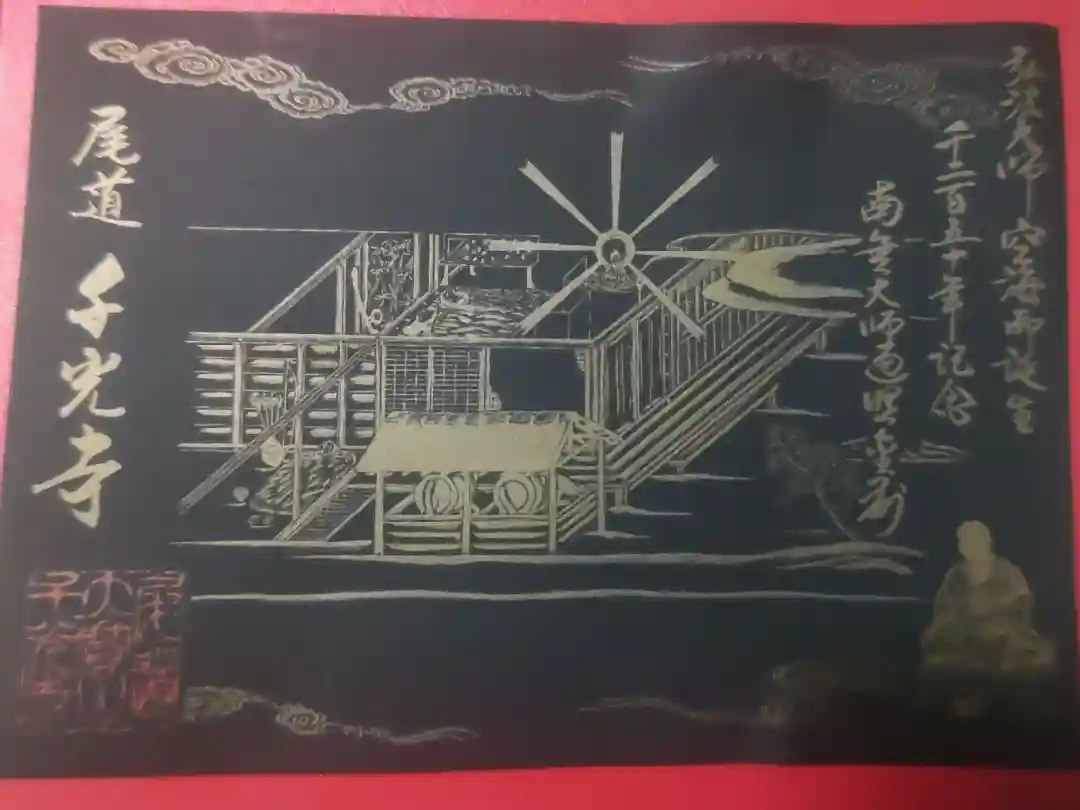 弘法大師 空海御誕生
千二百五十年記念
南無大師遍照金剛
尾道 千光寺